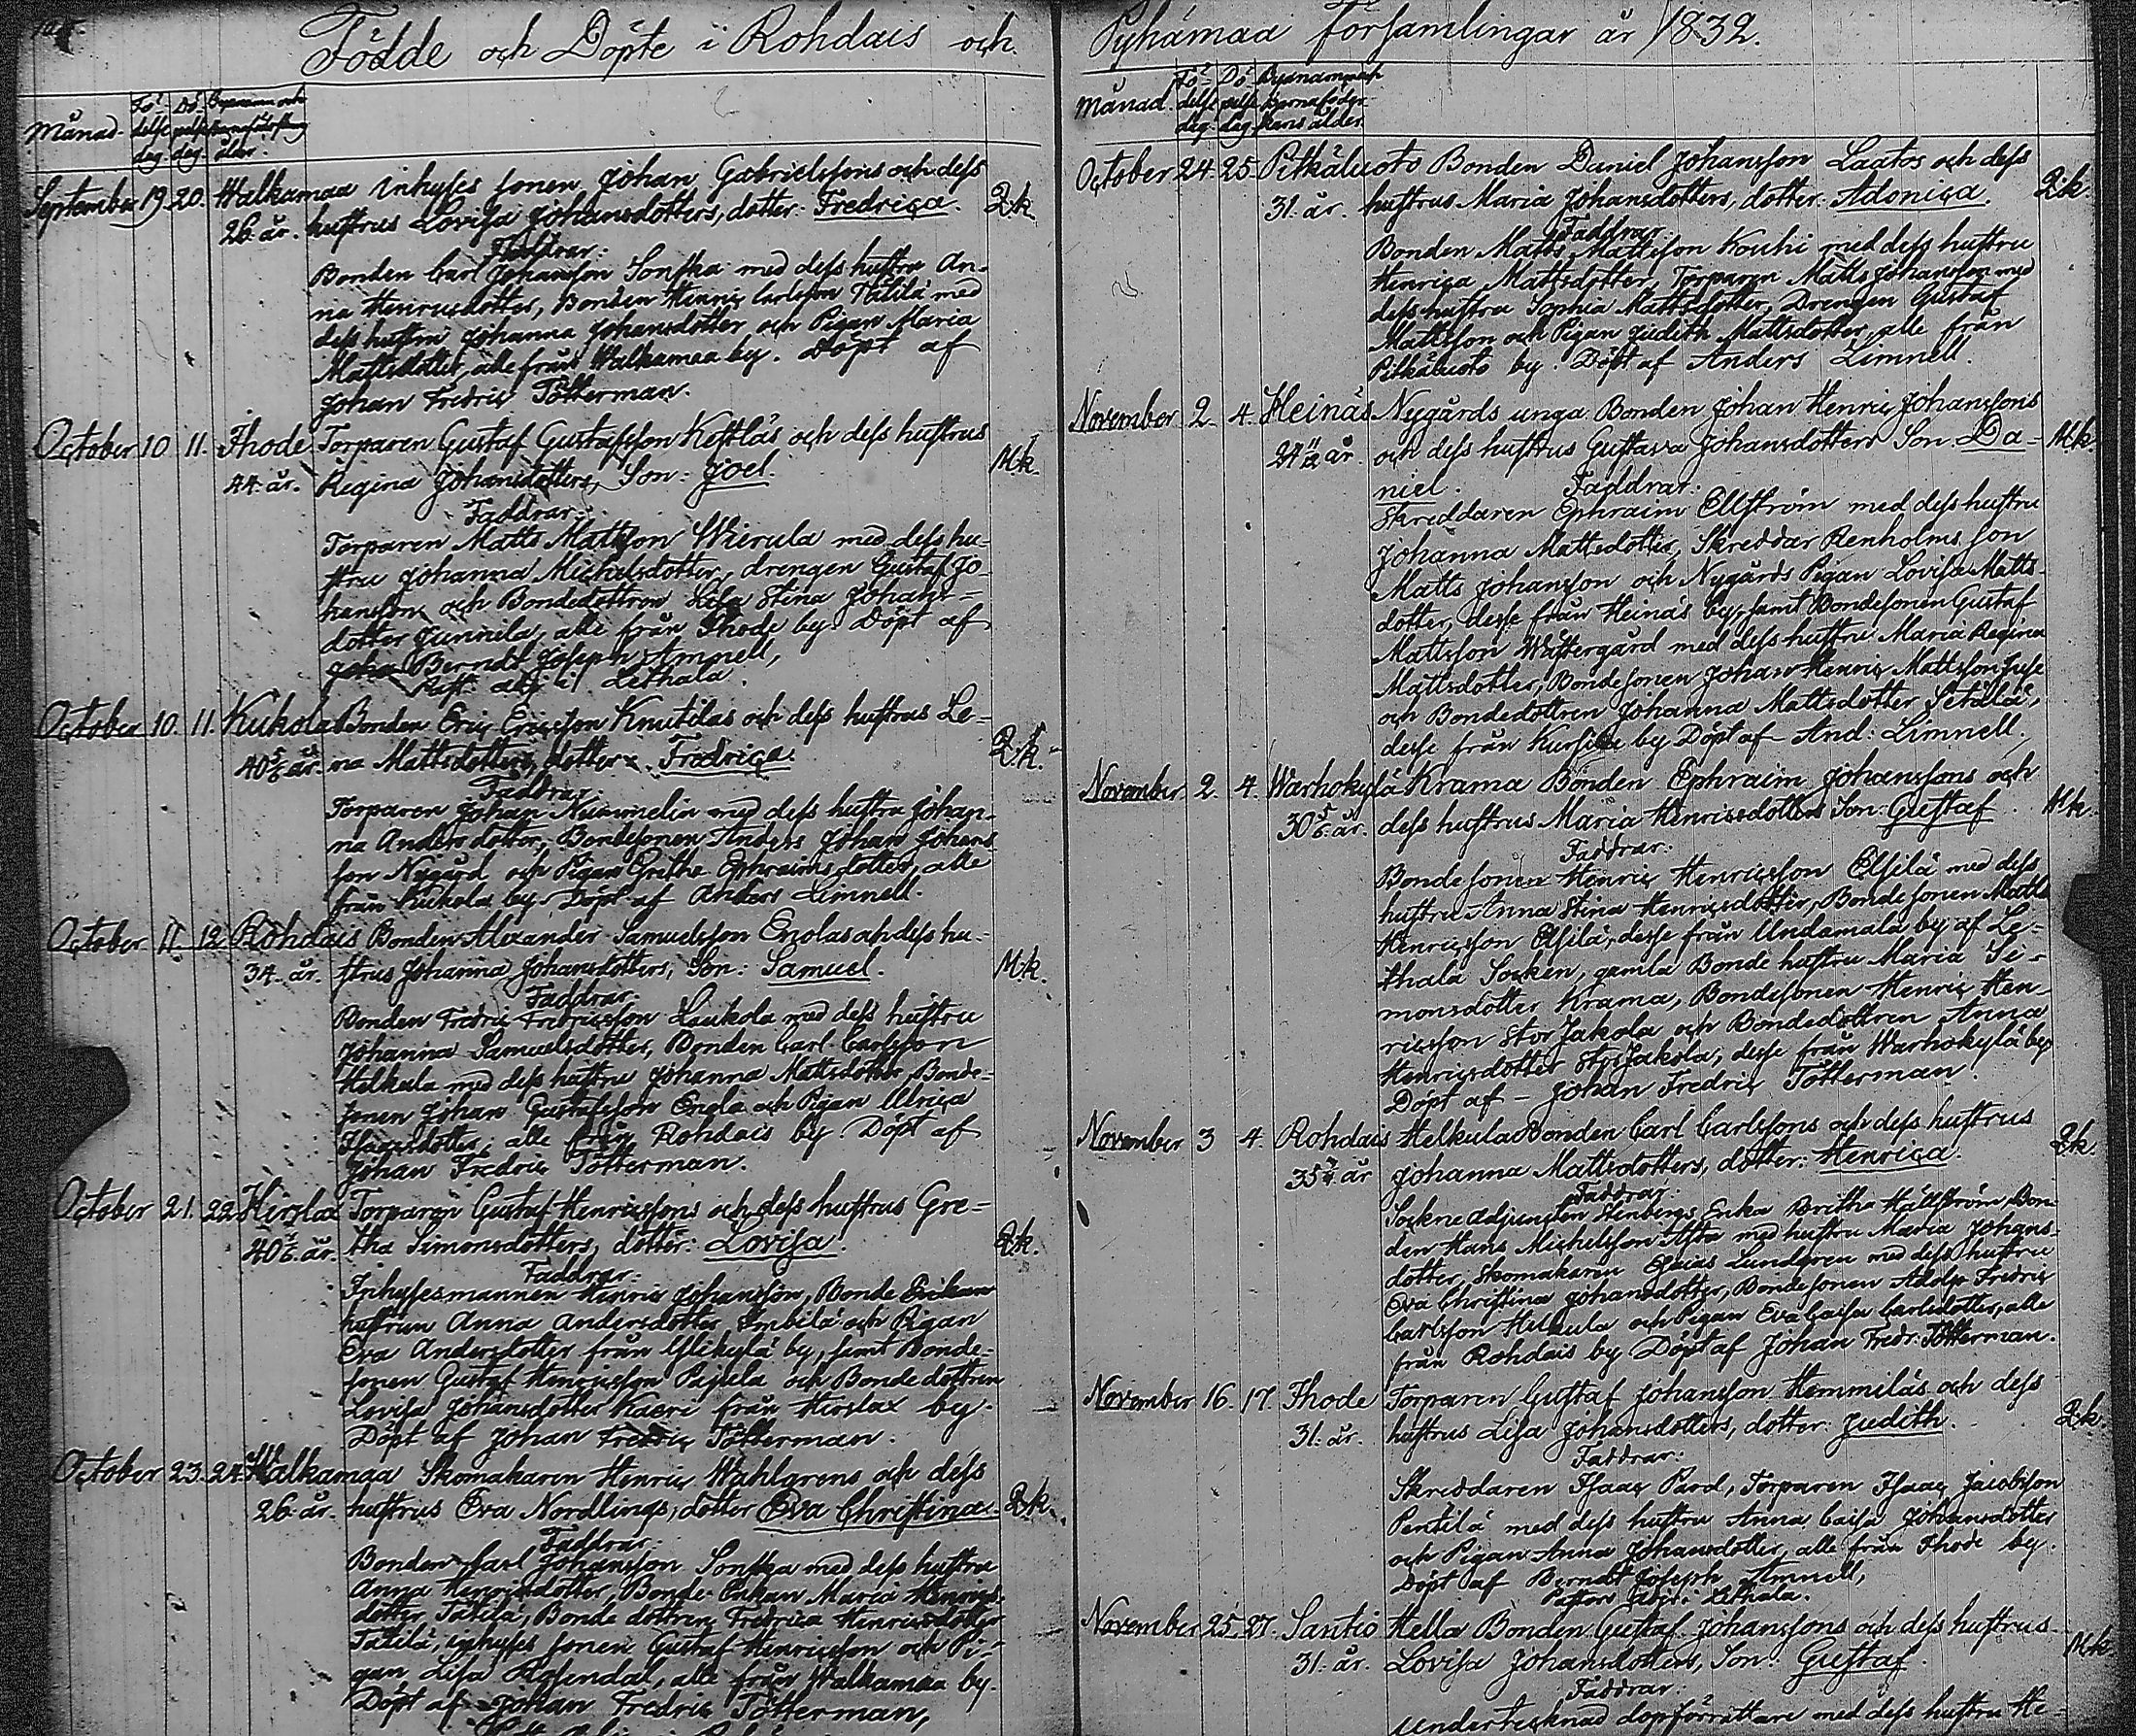 Födde och Döpte i Rohdais och
Månad. Fö- Dö- Bynamn och
delse pelse
dag dag ålder.
September 19 20. Walkamaa inhyses sonen Johan Gabrielssons och dess
26. år. hustrus Lovisa Johansdotters, dotter: Fredrica. Qk.
Faddrar:
Bonden Carl Johansson Sonska med dess hustru An-
na Henricsdotter, Bonden Henric Carlsson Tätilä med
dess hustru Johanna Johansdotter och Pigan Maria
Mattsdotter, alle från Walkamaa by. Döpt af
Johan Fredric Tötterman.
October 10 11. Ihode Torparen Gustaf Gustafsson Kettläs och dess hustrus
44. år. Regina Johansdotters, Son: Joel. Mk.
Faddrar:
Torparen Matts Mattsson Wierula med dess hu-
stru Johanna Michelsdotter, drengen Gustaf Jo-
hansson och Bondedottren Stina Johans-
dotter Junnila, alle från Ihode by. Döpt af
Berndt Joseph Amnell,
Past. adj. i Lethala.
October 10. 11. Kukola Bonden Eric Ericsson Knutilas och dess hustrus Le-
40 5/6 år. na Mattsdotters, dotter: Fredrica. Qk.
Faddrar:
Torparen Johan Nummelin med dess hustru Johan-
na Andersdotter, Bondesonen Anders Johan Johans-
son Nygård och Pigan Gretha Ephraimsdotter, alle
från Kukola by. Döpt af Anders Limnell.
October 11. 12 Rohdais Bonden Alexander Samuelsson Englas och dess hu-
34. år. strus Johanna Johansdotters, Son: Samuel. Mk.
Faddrar:
Bonden Fredric Fredricsson Laukola med dess hustru
Johanna Samuelsdotter, Bonden Carl Carlsson
Helkula med dess hustru Johanna Mattsdotter, Bonde-
sonen Johan Gustafsson Engla och Pigan Ulrica
Isaacsdotter, alle från Rohdais by. Döpt af
Johan Fredric Tötterman.
October 21. 22. Hirslax Torparen Gustaf Henricssons och dess hustrus Gre-
år. tha Simonsdotters, dotter: Lovisa. Qk.
Faddrar:
Inhysesmannen Henric Johansson, Bonde
hustrun Anna Andersdotter Imbilä och Pigan
Eva Andersdotter från Ylikylä by, samt Bonde-
sonen Gustaf Henricsson Pajula och Bondedottren
Lovisa Johansdotter Kaeri från Hirslax by.
Döpt af Johan Fredric Tötterman.
October 23. 24. Walkamaa Skomakaren Henric Wahlgrens och dess
26. år. hustrus Eva Nordlings, dotter Eva Christina. Qk.
Faddrar:
Bonden Carl Johansson Sonska med dess hustru
Anna Henricsdotter, Bonde Enkan Maria Henrics-
dotter Tätilä, Bonde dottren Fredrica Henricsdotter
Tätilä, inhyses sonen Gustaf Henricsson och Pi-
gan Lisa Rosendal, alle från Walkamaa by.
Döpt af Johan Fredric Tötterman,
Pyhämaa församlingar år 1832.
Månad. Fö- Dö- Bynamn och
delse pelse Barnaföder-
dag dag skans ålder.
October 24. 25. Pitkäluoto Bonden Daniel Johansson Laatos och dess
31. år. hustrus Maria Johansdotters, dotter: Adonica. Qk.
Faddrar:
Bonden Matts Mattsson Kouhi med dess hustru
Henrica Mattsdotter, Torparen Matts Johansson med
dess hustru Sophia Mattsdotter, Drengen Gustaf
Mattsson och Pigan Judith Mattsdotter, alle från
Pitkäluoto by. Döpt af Anders Limnell.
November 2. 4. Heinäs Nygårds unga Bonden Johan Henric Johanssons
år. och dess hustrus Gustava Johansdotters Son: Da- Mk.
niel. Faddrar:
Skreddaren Ephraim Ellström med dess hustru
Johanna Mattsdotter, Skreddar Renholms son
Matts Johansson och Nygårds Pigan Lovisa Matts-
dotter, desse från Heinäs by, samt Bondesonen Gustaf
Mattsson Wästergård med dess hustru Maria Regina
Mattsdotter, Bondesonen Johan Henric Mattsson
och Bondedottren Johanna Mattsdotter Setälä,
desse från Kursila by. Döpt af And: Limnell.
November 2. 4. Warhokylä Krama Bonden Ephraim Johanssons och
30 5/6 år. dess hustrus Maria Henricsdotters Son: Gustaf. Mk.
Faddrar:
Bondesonen Henric Henricsson Elsilä med dess
hustru Anna Stina Henricsdotter, Bondesonen Matts
Henricsson Elsilä, desse från Undamala by af Le-
thala Socken, gamla Bonde hustru Maria Si-
monsdotter Krama, Bondesonen Henric Hen-
ricsson Stor Jakola och Bondedottren Anna
Henricsdotter Stor Jakola, desse från Warhokylä by
Döpt af - Johan Fredric Tötterman.
November 3 4. Rohdais Helkula Bonden Carl Carlssons och dess hustrus
år Johanna Mattsdotters, dotter: Henrica. Qk.
Faddrar:
Sockne adjuncten Stenbergs Enka Britha Hällström, Bon-
den Hans Michelsson med hustru Maria Johans-
dotter, Skomakaren Esaias Lundgren med dess hustru
Eva Christina Johansdotter, Bondesonen Adolph Fredric
Carlsson Helkula och Pigan Eva Caisa Carlsdotter, alle
från Rohdais by. Döpt af Johan Fredr: Tötterman.
November 16. 17. Ihode Torparen Gustaf Johansson Hemmiläs och dess
31. år. hustrus Lisa Johansdotters, dotter: Judith. Qk.
Faddrar:
Skreddaren Isaac Pard, Torparen Isaac Jacobsson
Pentilä med dess hustru Anna Caisa Johansdotter
och Pigan Anna Johansdotter, alle från Ihode by.
Döpt af Berndt Joseph Amnell,
Pastors adj. i Lethala.
November 25. 27. Santio Hella Bonden Gustaf Johanssons och dess hustrus
31. år. Lovisa Johansdotters, Son: Gustaf. Mk
Faddrar:
Undertecknad dopförrättare med dess hustru He-